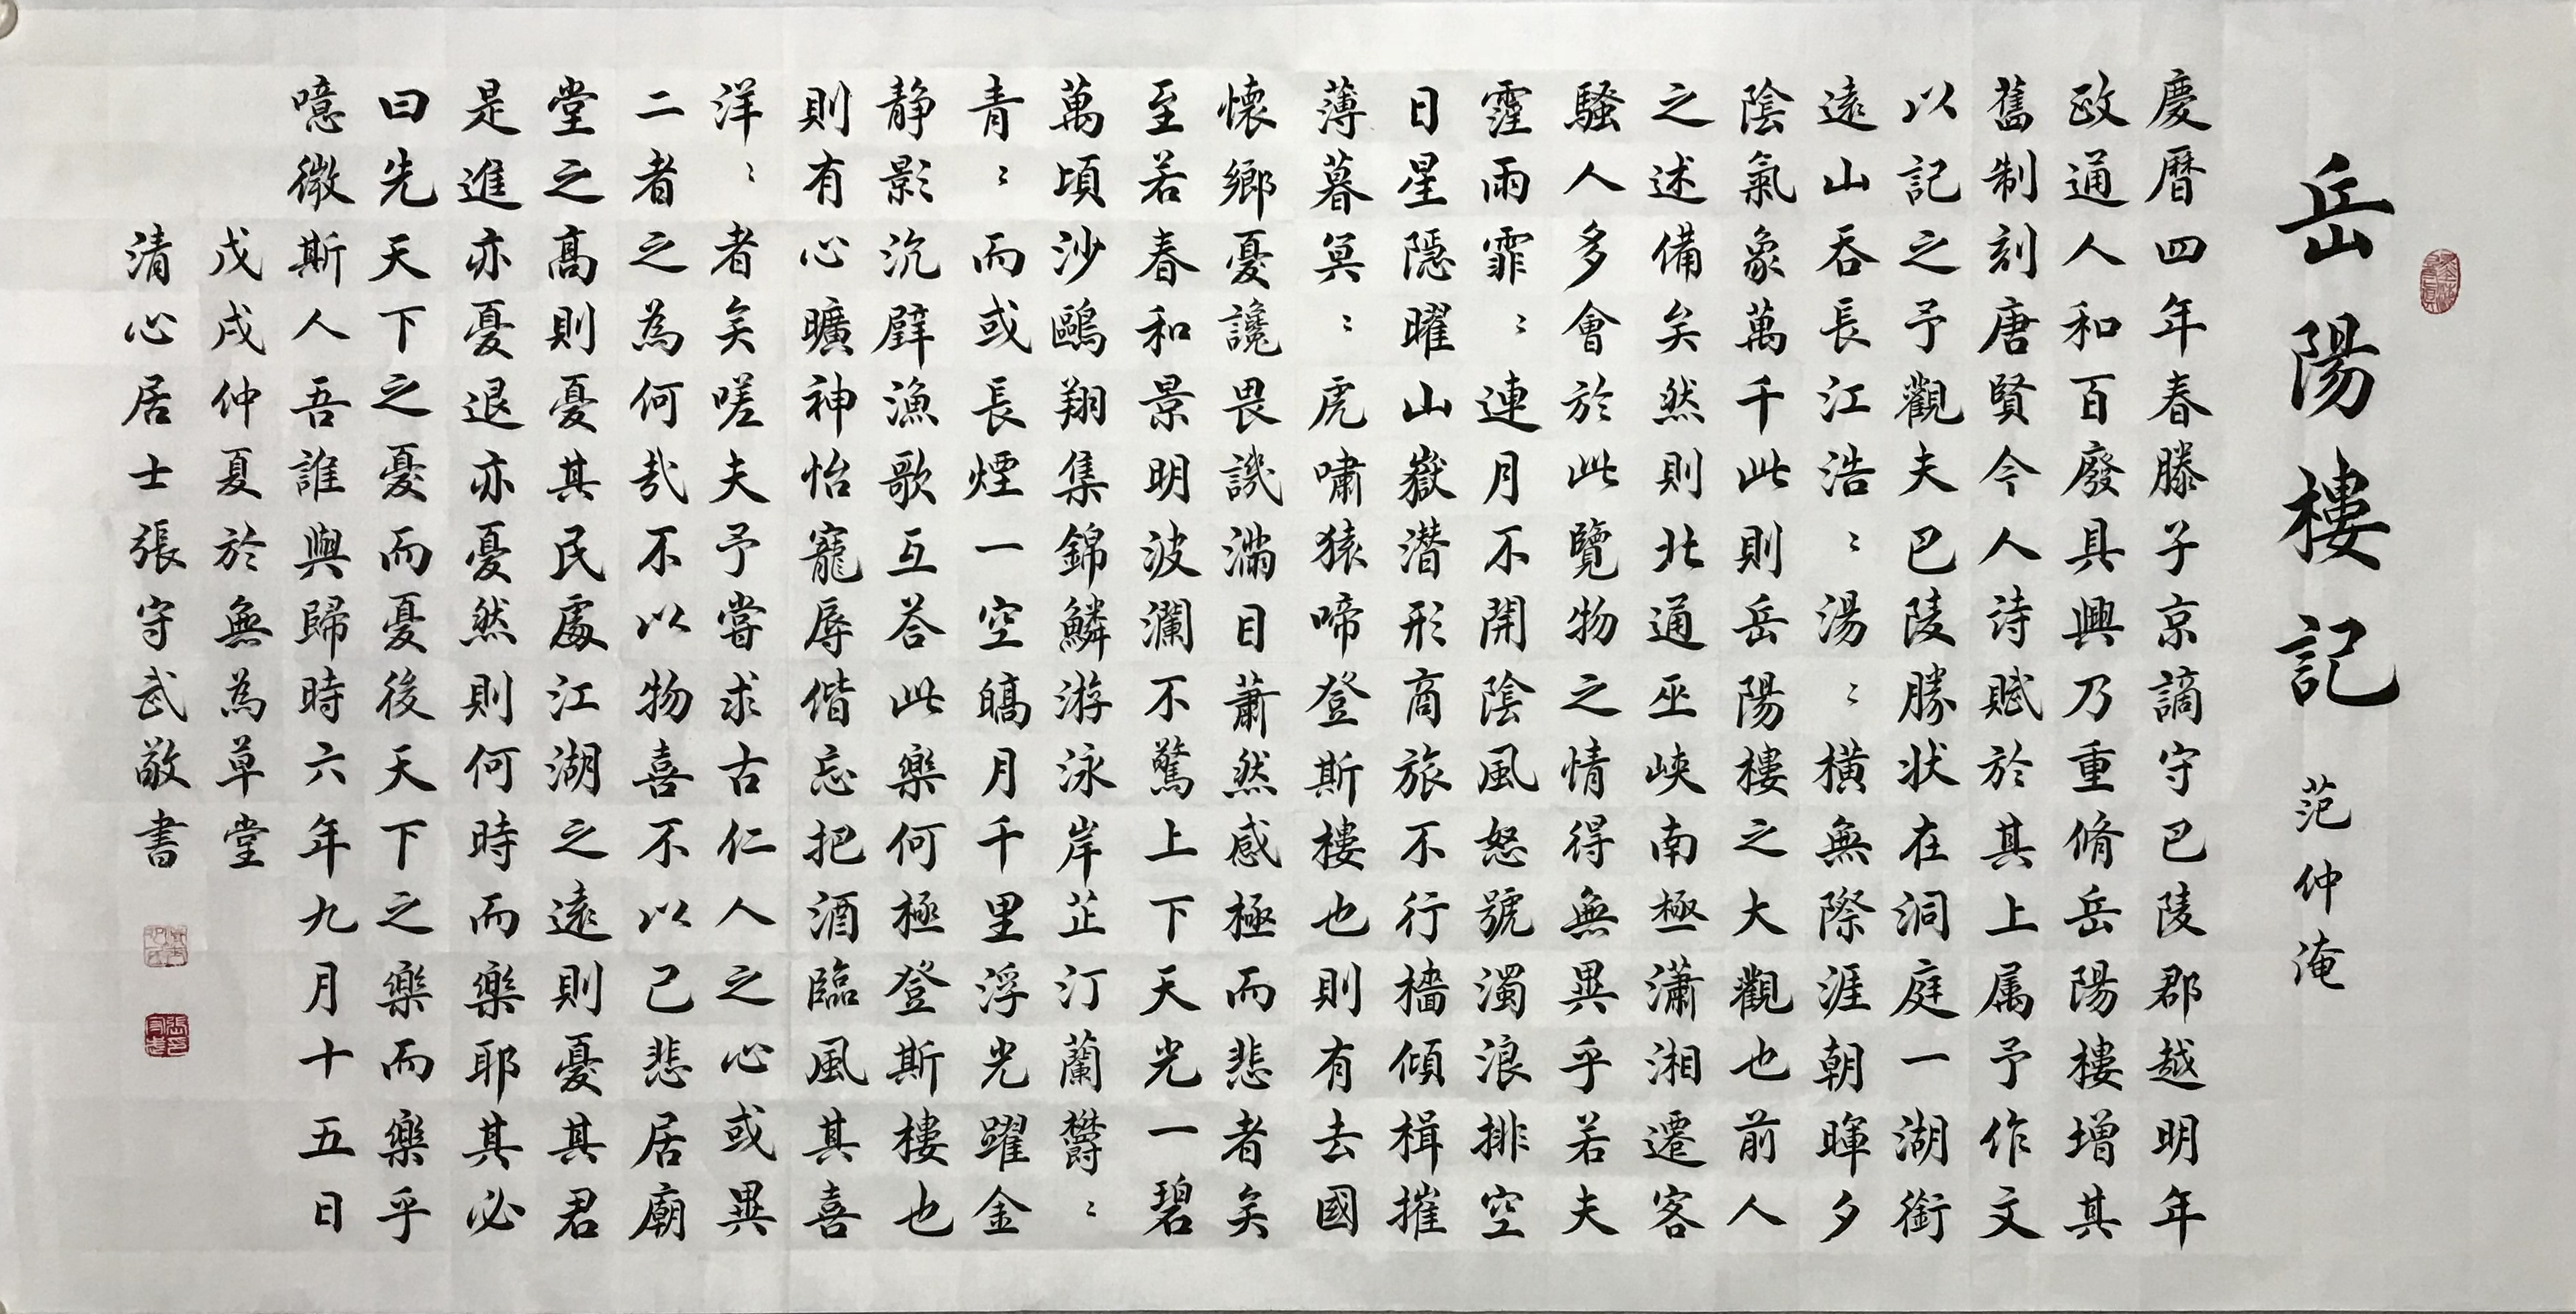 岳陽樓記 范仲淹
慶曆四年春滕子京謫守巴陵郡越明年
政通人和百廢具興乃重脩岳陽樓增其
舊制刻唐賢今人詩賦於其上属予作文
以記之予觀夫巴陵勝状在洞庭一湖銜
遠山吞長江浩〻湯〻橫無際涯朝暉夕
陰氣象萬千此則岳陽樓之大觀也前人
之述備矣然則北通巫峽南極瀟湘遷客
騷人多會於此覽物之情得無異乎若夫
霪雨霏〻連月不開陰風怒號濁浪排空
日星隱曜山嶽潛形商旅不行檣傾楫摧
薄暮冥〻虎嘯猿啼登斯樓也則有去國
懷鄉憂讒畏譏滿目蕭然感極而悲者矣
至若春和景明波瀾不驚上下天光一碧
萬頃沙鷗翔集錦鱗游泳岸芷汀蘭欝〻
青〻而或長煙一空皜月千里浮光躍金
静影沉璧漁歌互荅此樂何極登斯樓也
則有心曠神怡寵辱偕忘把酒臨風其喜
洋〻者矣嗟夫予嘗求古仁人之心或異
二者之為何哉不以物喜不以己悲居廟
堂之高則憂其民處江湖之遠則憂其君
是進亦憂退亦憂然則何時而樂耶其必
曰先天下之憂而憂後天下之樂而樂乎
噫微斯人吾誰與歸時六年九月十五日
戊戌仲夏於無為草堂
清心居士張守武敬書